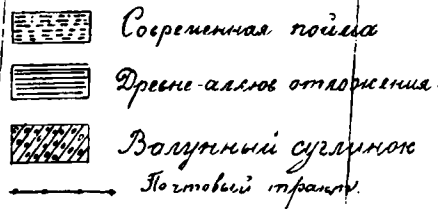 Современная пойма
Древне-аллюв отложения.
Валунный суглинок
Почтовый тракт.